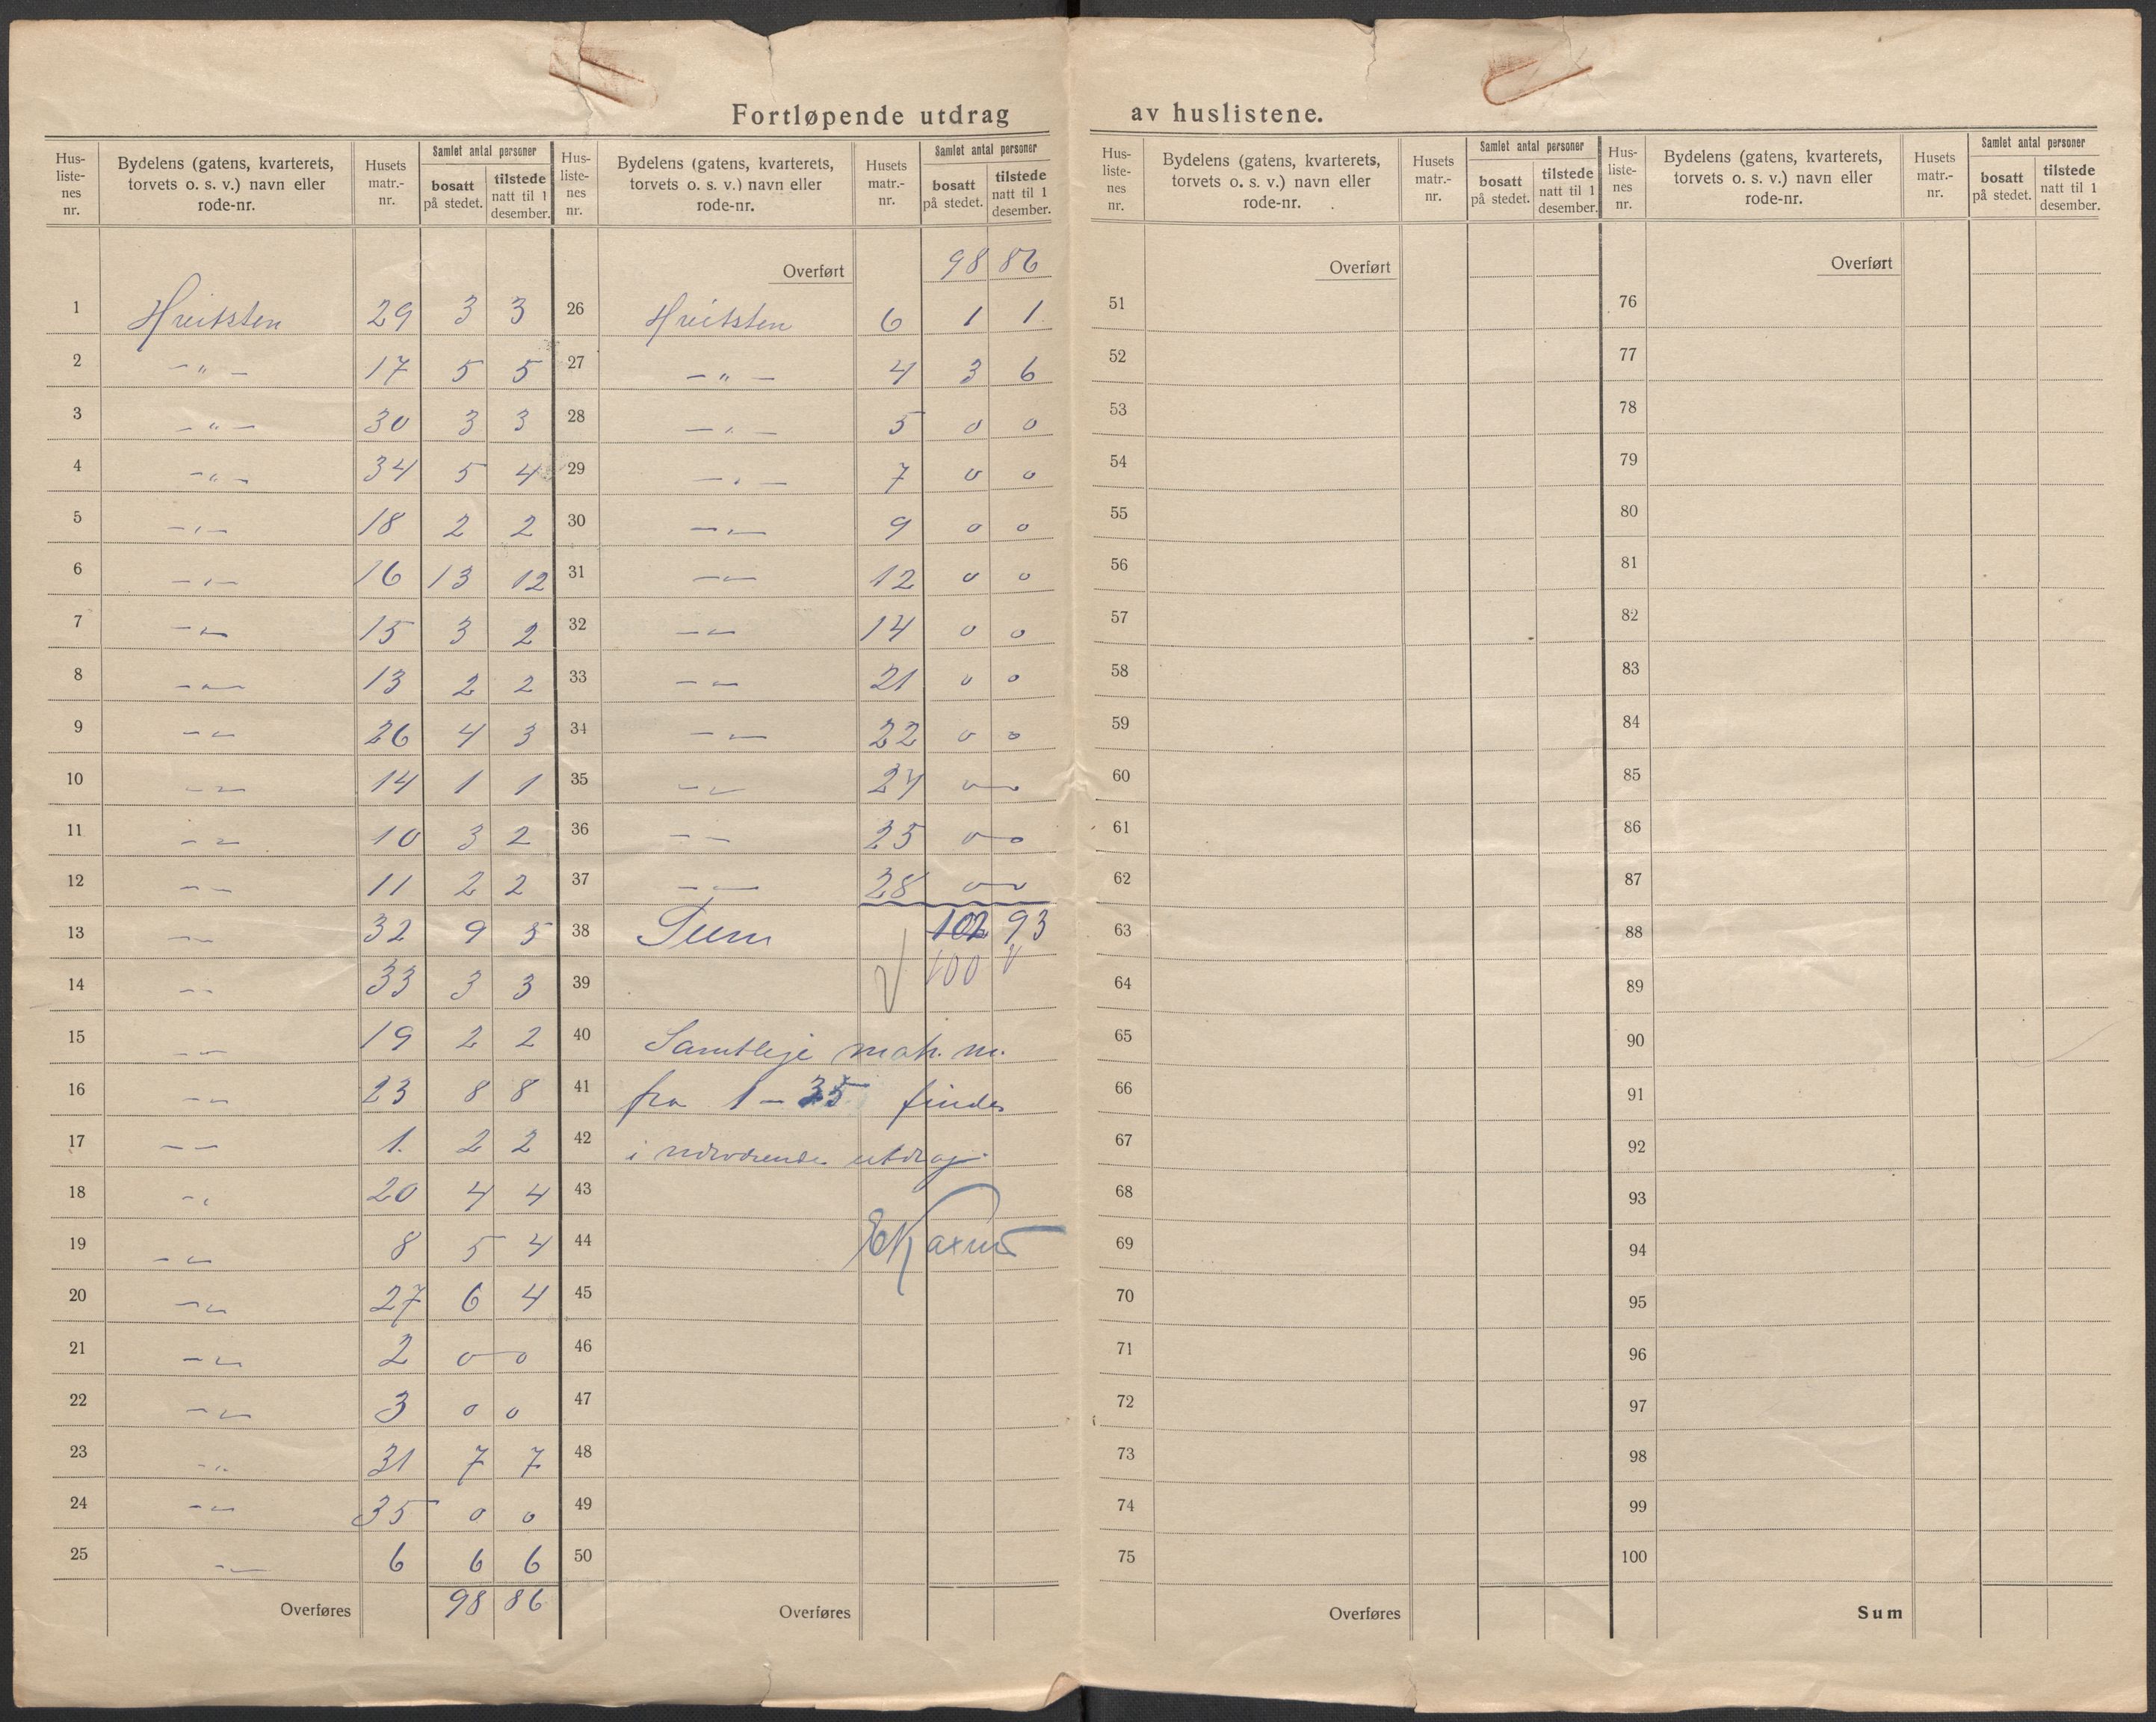 Fortløpende utdrag av huslistene.
Hus-listenes nr. | Bydelens (gatens, kvarterets, torvets o. s. v.) navn eller rode-nr. | Husets matr.-nr. | Samlet antal personer bosatt på stedet. | tilstede natt til 1 desember.
1 Hvitsten 29 3 3
2 -"- 17 5 5
3 -"- 30 3 3
4 -"- 34 5 4
5 -"- 18 2 2
6 -"- 16 13 12
7 -"- 15 3 2
8 -"- 13 2 2
9 -"- 26 4 3
10 -"- 14 1 1
11 -"- 10 3 2
12 -"- 11 2 2
13 -"- 32 9 5
14 -"- 33 3 3
15 -"- 19 2 2
16 -"- 23 8 8
17 -"- 1. 2 2
18 -"- 20 4 4
19 -"- 8 5 4
20 -"- 27 6 4
21 -"- 2 0 0
22 -"- 3 0 0
23 -"- 31 7 7
24 -"- 35 0 0
25 -"- 6 6 6
Overføres 98 86
Hus-listenes nr. | Bydelens (gatens, kvarterets, torvets o. s. v.) navn eller rode-nr. | Husets matr.-nr. | Samlet antal personer bosatt på stedet. | tilstede natt til 1 desember.
Overført 98 86
26 Hvitsten 6 1 1
27 -"- 4 3 6
28 -"- 5 0 0
29 -"- 7 0 0
30 -"- 9 0 0
31 -"- 12 0 0
32 -"- 14 0 0
33 -"- 21 0 0
34 -"- 22 0 0
35 -"- 24 0 0
36 -"- 25 0 0
37 -"- 28 0 0
38 Sum 102 93
39 100
40 Samtlige matr. nr.
41 fra 1 - 35 findes
42 i nærværende utdrag.
43
44
45
46
47
48
49
50
Overføres
Hus-listenes nr. | Bydelens (gatens, kvarterets, torvets o. s. v.) navn eller rode-nr. | Husets matr.-nr. | Samlet antal personer bosatt på stedet. | tilstede natt til 1 desember.
Overført
51
52
53
54
55
56
57
58
59
60
61
62
63
64
65
66
67
68
69
70
71
72
73
74
75
Overføres
Hus-listenes nr. | Bydelens (gatens, kvarterets, torvets o. s. v.) navn eller rode-nr. | Husets matr.-nr. | Samlet antal personer bosatt på stedet. | tilstede natt til 1 desember.
Overført
76
77
78
79
80
81
82
83
84
85
86
87
88
89
90
91
92
93
94
95
96
97
98
99
100
Sum